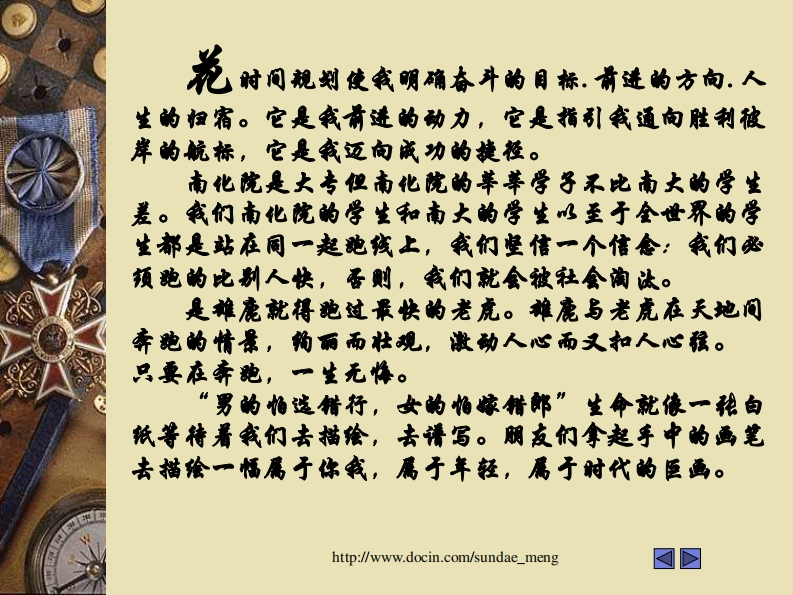 花时间规划使我明确奋斗的目标.前进的方向.人
生的归宿。它是我前进的动力，它是指引我通向胜利彼
岸的航标，它是我迈向成功的捷径。
南化院是大专但南化院的莘莘学子不比南大的学生
差。我们南化院的学生和南大的学生以至于全世界的学
生都是站在同一起跑线上，我们坚信一个信念：我们必
须跑的比别人快，否则，我们就会被社会淘汰。
是雄鹿就得跑过最快的老虎。雄鹿与老虎在天地间
奔跑的情景，绚丽而壮观，激动人心而又扣人心弦。
只要在奔跑，一生无悔。
“男的怕选错行，女的怕嫁错郎”生命就像一张白
纸等待着我们去描绘，去谱写。朋友们拿起手中的画笔
去描绘一幅属于你我，属于年轻，属于时代的巨画。
http://www.docin.com/sundae_meng